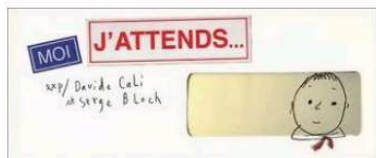 MOI
J'ATTENDS...
Davide Cali
et Serge Bloch